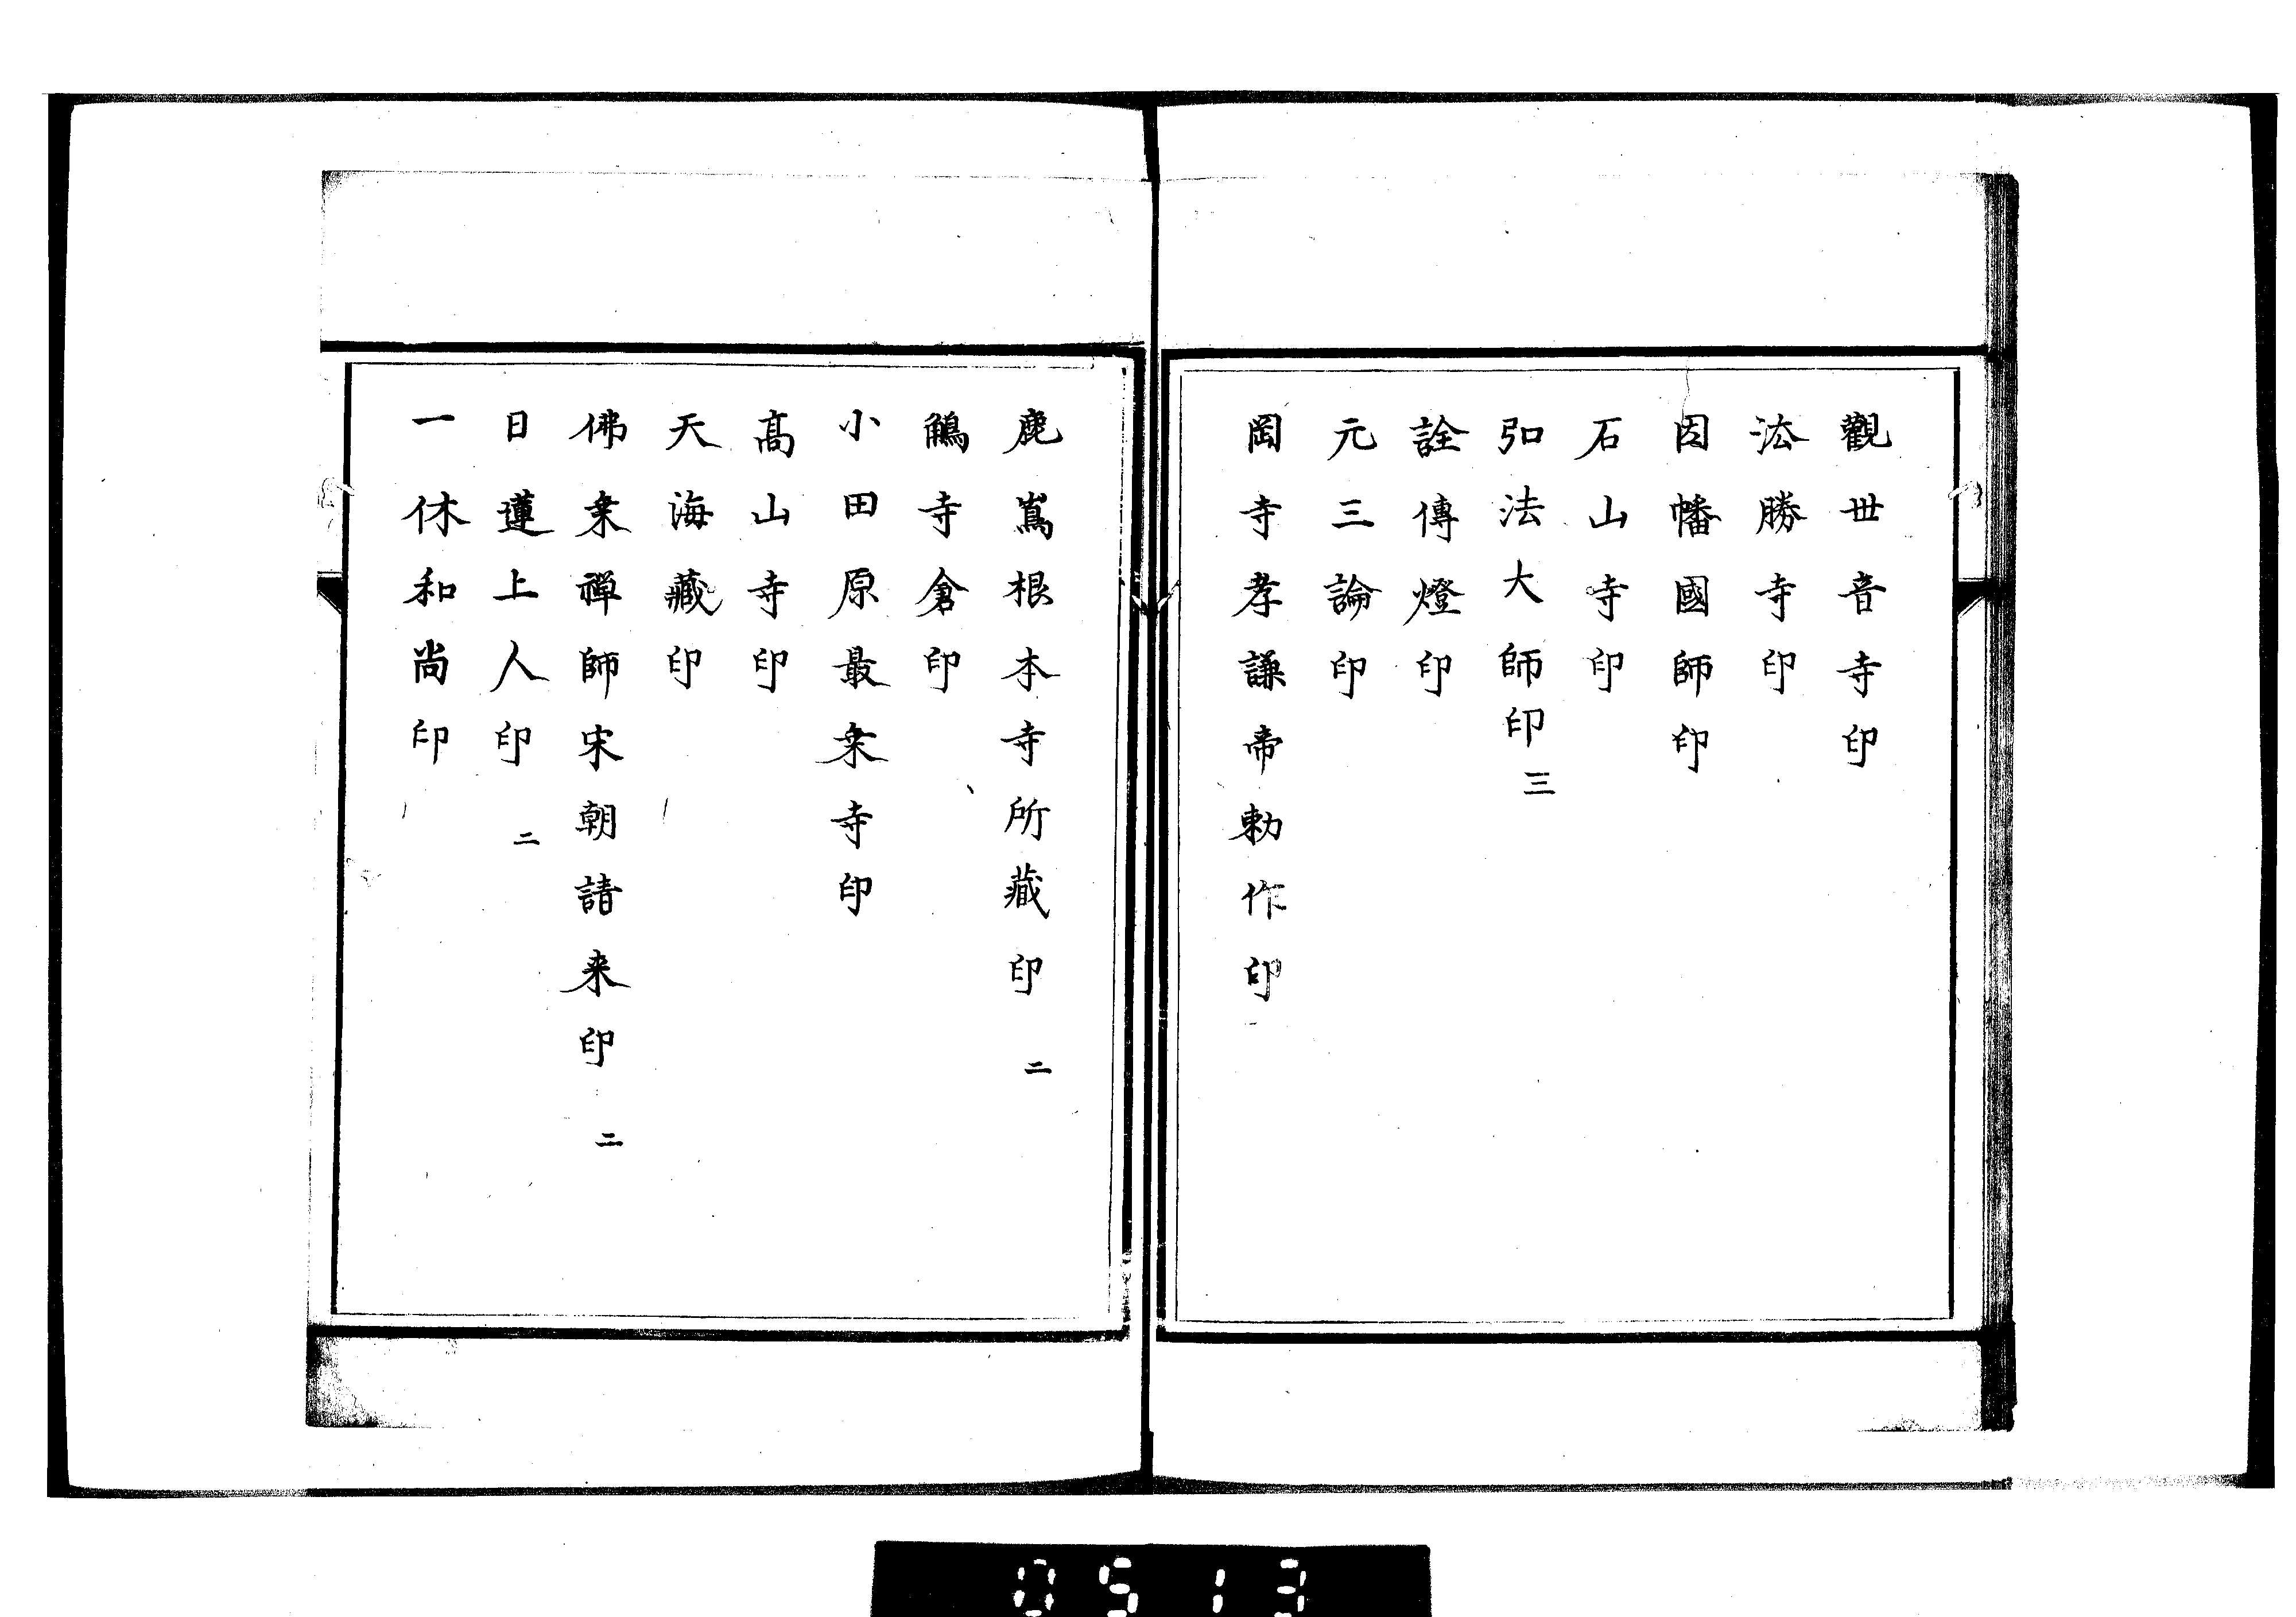 觀世音寺印
法勝寺印
因幡國師印
石山寺印
弘法大師印 三
詮傳燈印
元三論印
岡寺孝謙帝勅作印
鹿嶌根本寺所藏印 二
鵤寺倉印
小田原最乗寺印
髙山寺印
天海藏印
佛乗禅師宋朝請来印 二
日蓮上人印 二
一休和尚印
0513